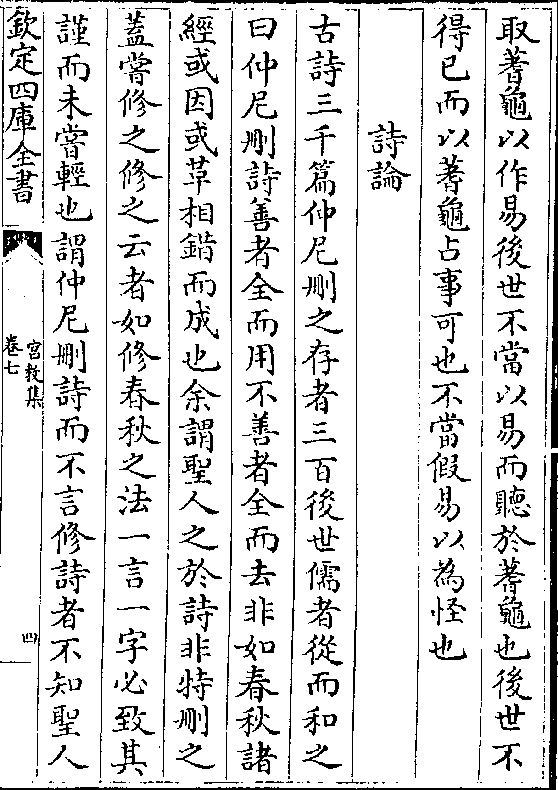 取蓍龜以作易後世不當以易而聽於蓍龜也後世不
得已而以蓍龜占事可也不當假易以為怪也
詩論
古詩三千篇仲尼刪之存者三百後世儒者從而和之
曰仲尼刪詩善者全而用不善者全而去非如春秋諸
經或因或革相錯而成也余謂聖人之於詩非特刪之
蓋嘗修之修之云者如修春秋之法一言一字必致其
謹而未嘗輕也謂仲尼刪詩而不言修詩者不知聖人
欽定四庫全書
宮教集
卷七
四